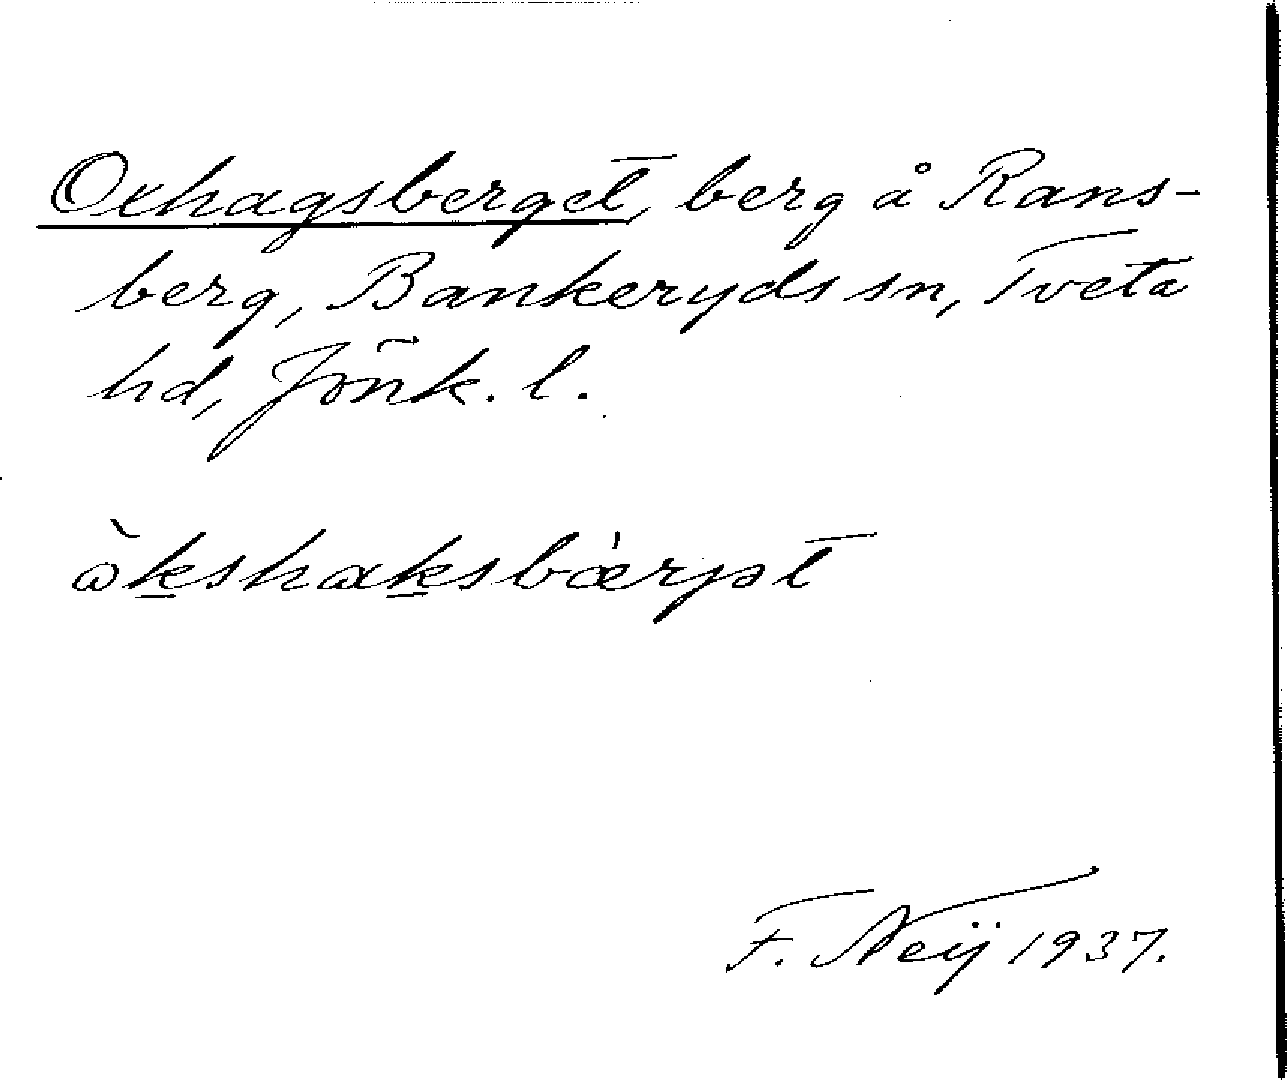 Oxhagsberget, berg å Rans-
berg, Bankeryds sn, Tveta
hd, Jönk. l.
ὼk̲shak̲sbæ̀rjət
F. Neij 1937.